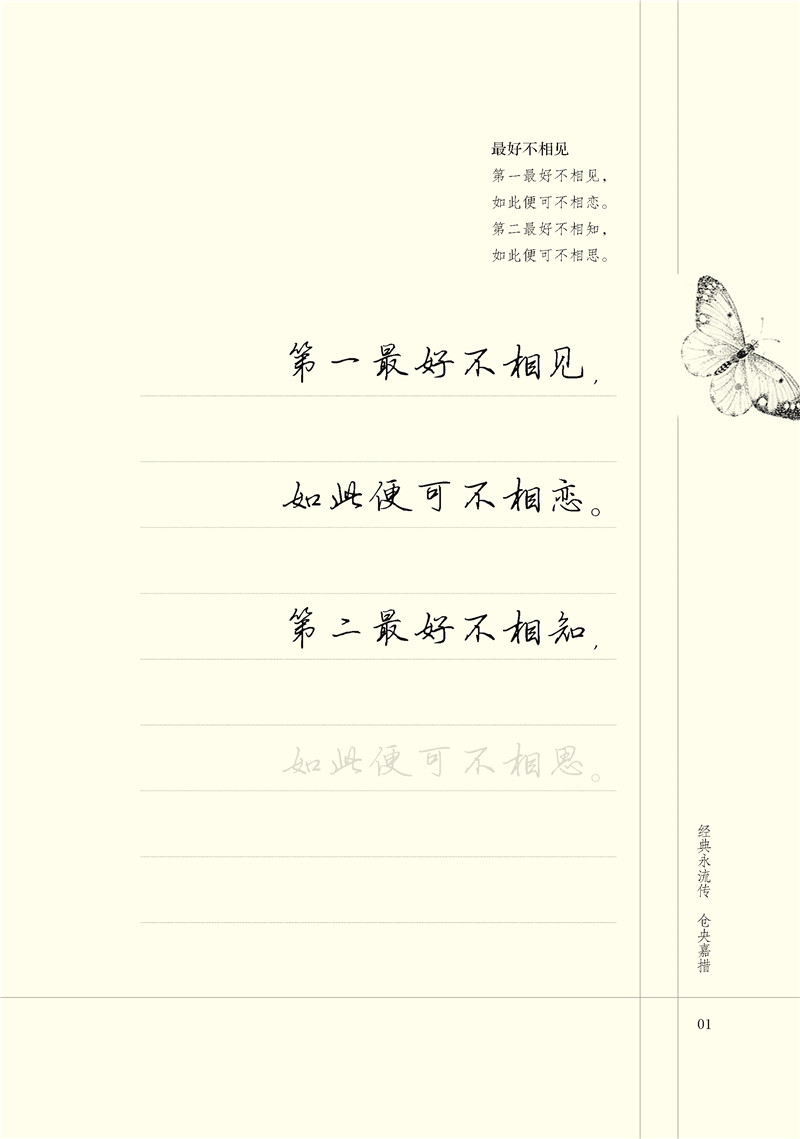 最好不相见
第一最好不相见，
如此便可不相恋。
第二最好不相知，
如此便可不相思。
第一最好不相见，
如此便可不相恋。
第二最好不相知，
如此便可不相思。
经典永流传 仓央嘉措
01